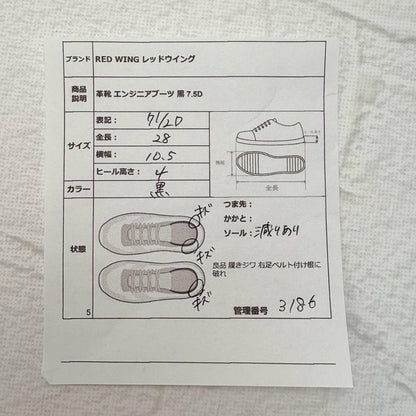 ブランド RED WING レッドウイング
商品説明 革靴 エンジニアブーツ 黒 7.5D
サイズ
表記: 7 1/2D
全長: 28
横幅: 10.5
ヒール高さ: 4
横幅
全長
カラー 黒
状態
キズ
キズ
キズ
つま先:
かかと:
ソール: 減りあり
良品 履きジワ 右足ベルト付け根に
破れ
5
管理番号 3186